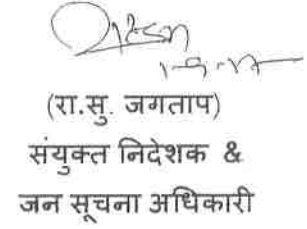 (रा.सु. जगताप)
संयुक्त निदेशक &
जन सूचना अधिकारी